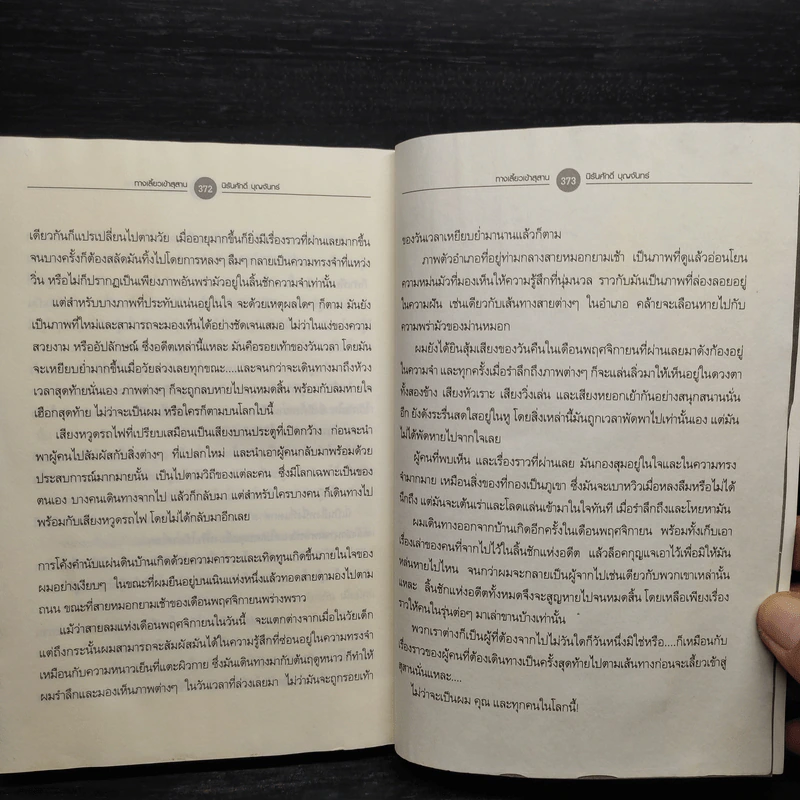 ทางเลี้ยวเข้าสุสาน 372 นิรันศักดิ์ บุญจันทร์
เดียวกันก็แปรเปลี่ยนไปตามวัย เมื่ออายุมากขึ้นก็ยิ่งมีเรื่องราวที่ผ่านเลยมากขึ้น
จนบางครั้งก็ต้องสลัดมันทิ้งไปโดยการหลงๆ ลืมๆ กลายเป็นความทรงจำที่แหว่ง
วิ่น หรือไม่ก็ปรากฏเป็นเพียงภาพอันพร่ามัวอยู่ในลิ้นชักความจำเท่านั้น
แต่สำหรับบางภาพที่ประทับแน่นอยู่ในใจ จะด้วยเหตุผลใดๆ ก็ตาม มันยัง
เป็นภาพที่ใหม่และสามารถจะมองเห็นได้อย่างชัดเจนเสมอ ไม่ว่าในแง่ของความ
สวยงาม หรืออัปลักษณ์ ซึ่งอดีตเหล่านี้แหละ มันคือรอยเท้าของวันเวลา โดยมัน
จะเหยียบย่ำมากขึ้นเมื่อวัยล่วงเลยทุกขณะ....และจนกว่าจะเดินทางมาถึงห้วง
เวลาสุดท้ายนั่นเอง ภาพต่างๆ ก็จะถูกลบหายไปจนหมดสิ้น พร้อมกับลมหายใจ
เฮือกสุดท้าย ไม่ว่าจะเป็นผม หรือใครก็ตามบนโลกใบนี้
เสียงหวูดรถไฟที่เปรียบเสมือนเป็นเสียงบานประตูที่เปิดกว้าง ก่อนจะนำ
พาผู้คนไปสัมผัสกับสิ่งต่างๆ ที่แปลกใหม่ และนำเอาผู้คนกลับมาพร้อมด้วย
ประสบการณ์มากมายนั้น เป็นไปตามวิถีของแต่ละคน ซึ่งมีโลกเฉพาะเป็นของ
ตนเอง บางคนเดินทางจากไป แล้วก็กลับมา แต่สำหรับใครบางคน ก็เดินทางไป
พร้อมกับเสียงหวูดรถไฟ โดยไม่ได้กลับมาอีกเลย
การโค้งคำนับแผ่นดินบ้านเกิดด้วยความคารวะและเทิดทูนเกิดขึ้นภายในใจของ
ผมอย่างเงียบๆ ในขณะที่ผมยืนอยู่บนเนินแห่งหนึ่งแล้วทอดสายตามองไปตาม
ถนน ขณะที่สายหมอกยามเช้าของเดือนพฤศจิกายนพร่างพราว
แม้ว่าสายลมแห่งเดือนพฤศจิกายนในวันนี้ จะแตกต่างจากเมื่อในวัยเด็ก
แต่ถึงกระนั้นผมสามารถจะสัมผัสมันได้ในความรู้สึกที่ซ่อนอยู่ในความทรงจำ
เหมือนกับความหนาวเย็นที่แตะผิวกาย ซึ่งมันเดินทางมากับต้นฤดูหนาว ก็ทำให้
ผมรำลึกและมองเห็นภาพต่างๆ ในวันเวลาที่ล่วงเลยมา ไม่ว่ามันจะถูกรอยเท้า
ทางเลี้ยวเข้าสุสาน 373 นิรันศักดิ์ บุญจันทร์
ของวันเวลาเหยียบย่ำมานานแล้วก็ตาม
ภาพตัวอำเภอที่อยู่ท่ามกลางสายหมอกยามเช้า เป็นภาพที่ดูแล้วอ่อนโยน
ความหม่นมัวที่มองเห็นให้ความรู้สึกที่นุ่มนวล ราวกับมันเป็นภาพที่ล่องลอยอยู่
ในความฝัน เช่นเดียวกับเส้นทางสายต่างๆ ในอำเภอ คล้ายจะเลือนหายไปกับ
ความพร่ามัวของม่านหมอก
ผมยังได้ยินสุ้มเสียงของวันคืนในเดือนพฤศจิกายนที่ผ่านเลยมาดังก้องอยู่
ในความจำ และทุกครั้งเมื่อรำลึกถึงภาพต่างๆ ก็จะแล่นลิ่วมาให้เห็นอยู่ในดวงตา
ทั้งสองข้าง เสียงหัวเราะ เสียงวิ่งเล่น และเสียงหยอกเย้ากันอย่างสนุกสนานนั่น
อีก ยังดังระรื่นสดใสอยู่ในหู โดยสิ่งเหล่านี้มันถูกเวลาพัดพาไปเท่านั้นเอง แต่มัน
ไม่ได้พัดหายไปจากใจเลย
ผู้คนที่พบเห็น และเรื่องราวที่ผ่านเลย มันกองสุมอยู่ในใจและในความทรง
จำมากมาย เหมือนสิ่งของที่กองเป็นภูเขา ซึ่งมันจะเบาหวิวเมื่อหลงลืมหรือไม่ได้
นึกถึง แต่มันจะเต้นเร่าและโลดแล่นเข้ามาในใจทันที เมื่อรำลึกถึงและโหยหามัน
ผมเดินทางออกจากบ้านเกิดอีกครั้งในเดือนพฤศจิกายน พร้อมทั้งเก็บเอา
เรื่องเล่าของคนที่จากไปไว้ในลิ้นชักแห่งอดีต แล้วล็อคกุญแจเอาไว้เพื่อมิให้มัน
หล่นหายไปไหน จนกว่าผมจะกลายเป็นผู้จากไปเช่นเดียวกับพวกเขาเหล่านั้น
แหละ ลิ้นชักแห่งอดีตทั้งหมดจึงจะสูญหายไปจนหมดสิ้น โดยเหลือเพียงเรื่อง
ราวให้คนในรุ่นต่อๆ มาเล่าขานบ้างเท่านั้น
พวกเราต่างก็เป็นผู้ที่ต้องจากไปไม่วันใดก็วันหนึ่งมิใช่หรือ....ก็เหมือนกับ
เรื่องราวของผู้คนที่ต้องเดินทางเป็นครั้งสุดท้ายไปตามเส้นทางก่อนจะเลี้ยวเข้าสู่
สุสานนั่นแหละ....
ไม่ว่าจะเป็นผม คุณ และทุกคนในโลกนี้!